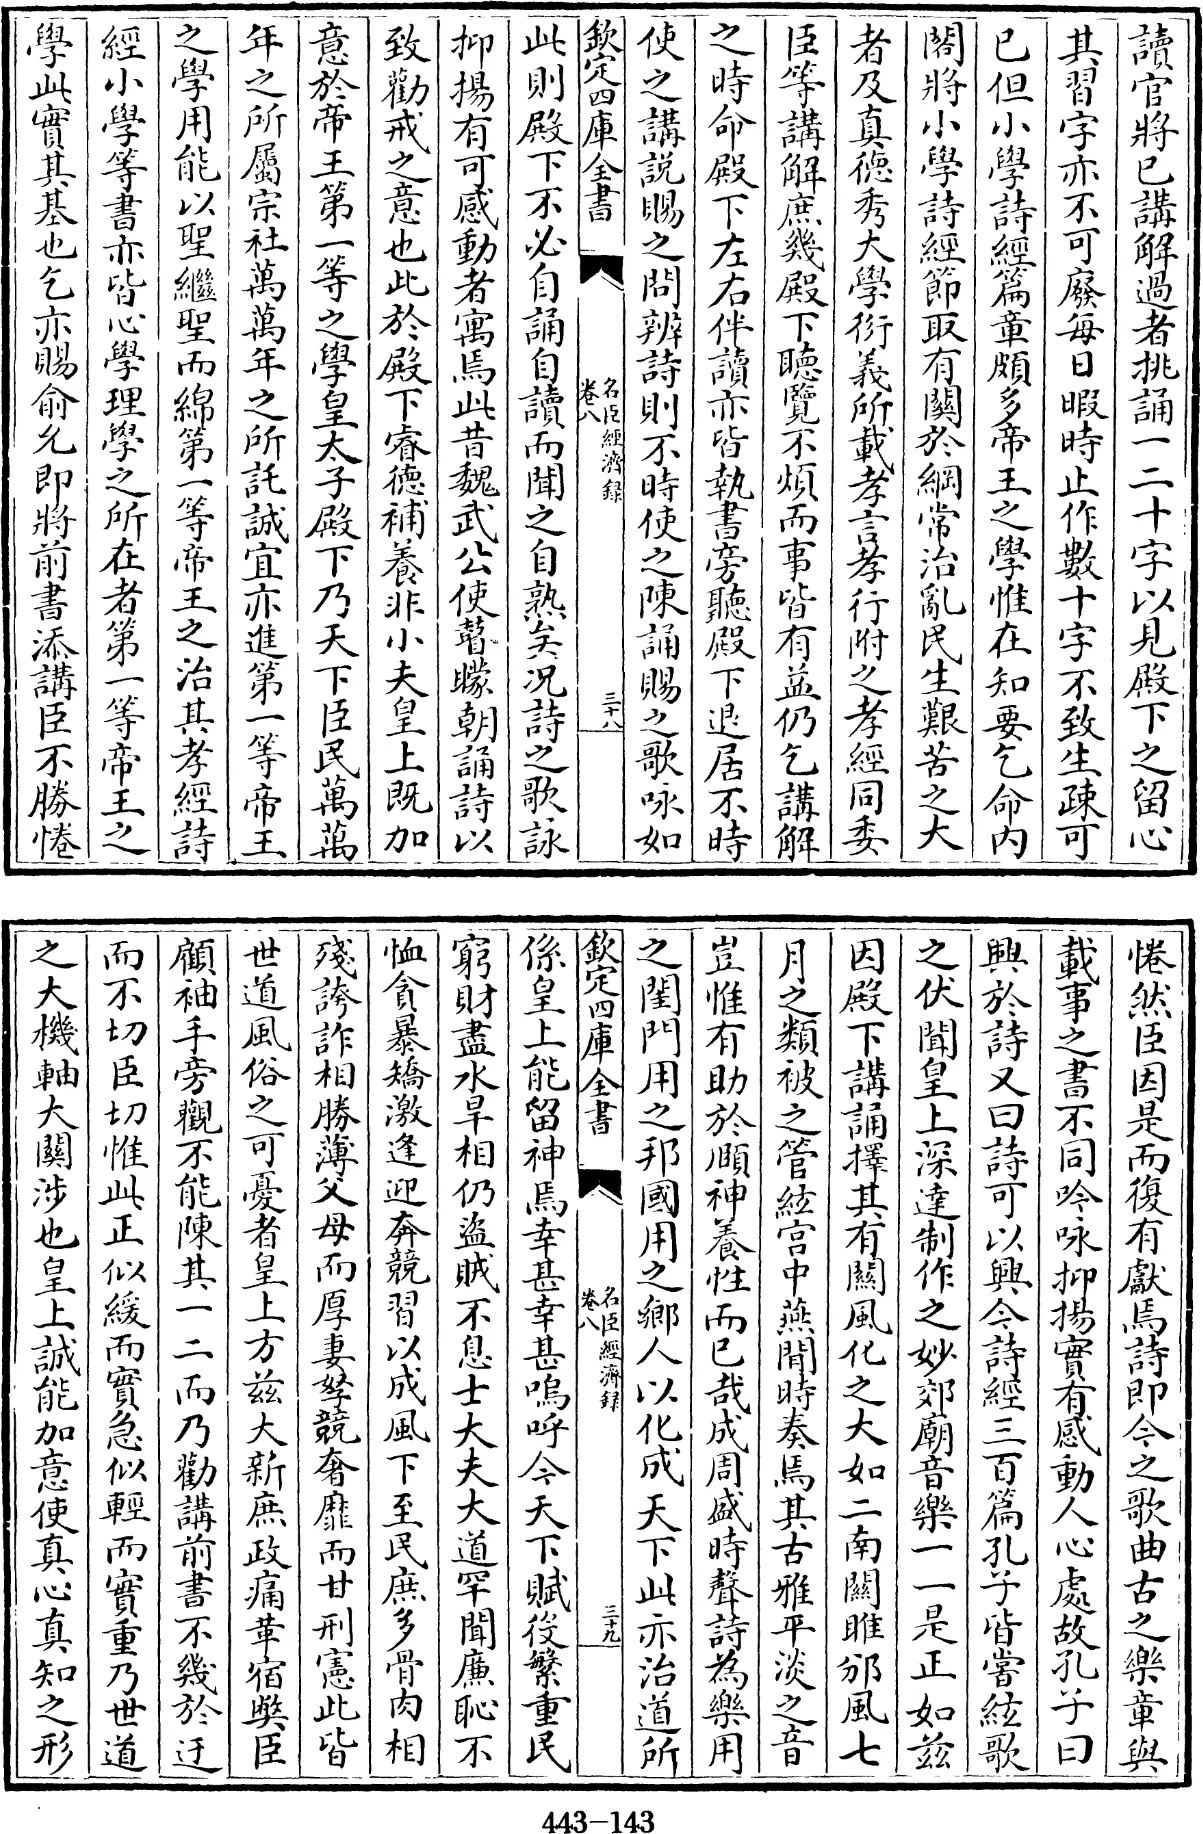 讀官將已講解過者挑誦一二十字以見殿下之留心
其習字亦不可廢每日暇時止作數十字不致生疎可
已但小學詩經篇章頗多帝王之學惟在知要乞命内
閣將小學詩經節取有關於綱常治亂民生艱苦之大
者及真德秀大學衍義所載孝言孝行附之孝經同委
臣等講解庶幾殿下聽覽不煩而事皆有益仍乞講解
之時命殿下左右伴讀亦皆執書旁聽殿下退居不時
使之講說賜之問辨詩則不時使之陳誦賜之歌咏如
欽定四庫全書
名臣經濟録
卷八
三十八
此則殿下不必自誦自讀而聞之自熟矣况詩之歌詠
抑揚有可感動者寓焉此昔魏武公使瞽矇朝誦詩以
致勸戒之意也此於殿下睿德補養非小夫皇上既加
意於帝王第一等之學皇太子殿下乃天下臣民萬萬
年之所屬宗社萬萬年之所託誠宜亦進第一等帝王
之學用能以聖繼聖而綿第一等帝王之治其孝經詩
經小學等書亦皆心學理學之所在者第一等帝王之
學此實其基也乞亦賜俞允即將前書添講臣不勝惓
惓然臣因是而復有獻焉詩即今之歌曲古之樂章與
載事之書不同吟咏抑揚實有感動人心處故孔子曰
興於詩又曰詩可以興今詩經三百篇孔子皆嘗絃歌
之伏聞皇上深達制作之妙郊廟音樂一一是正如兹
因殿下講誦擇其有關風化之大如二南關雎邠風七
月之類被之管絃宫中燕閒時奏焉其古雅平淡之音
豈惟有助於頤神養性而已哉成周盛時聲詩為樂用
之閨門用之邦國用之鄉人以化成天下此亦治道所
欽定四庫全書
名臣經濟録
卷八
三十九
係皇上能留神焉幸甚幸甚嗚呼今天下賦役繁重民
窮財盡水旱相仍盜賊不息士大夫大道罕聞廉恥不
恤貪暴矯激逢迎奔競習以成風下至民庶多骨肉相
殘誇詐相勝薄父母而厚妻孥競奢靡而甘刑憲此皆
世道風俗之可憂者皇上方兹大新庶政痛革宿獘臣
顧袖手旁觀不能陳其一二而乃勸講前書不幾於迂
而不切臣切惟此正似緩而實急似輕而實重乃世道
之大機軸大關涉也皇上誠能加意使真心真知之形
443-143